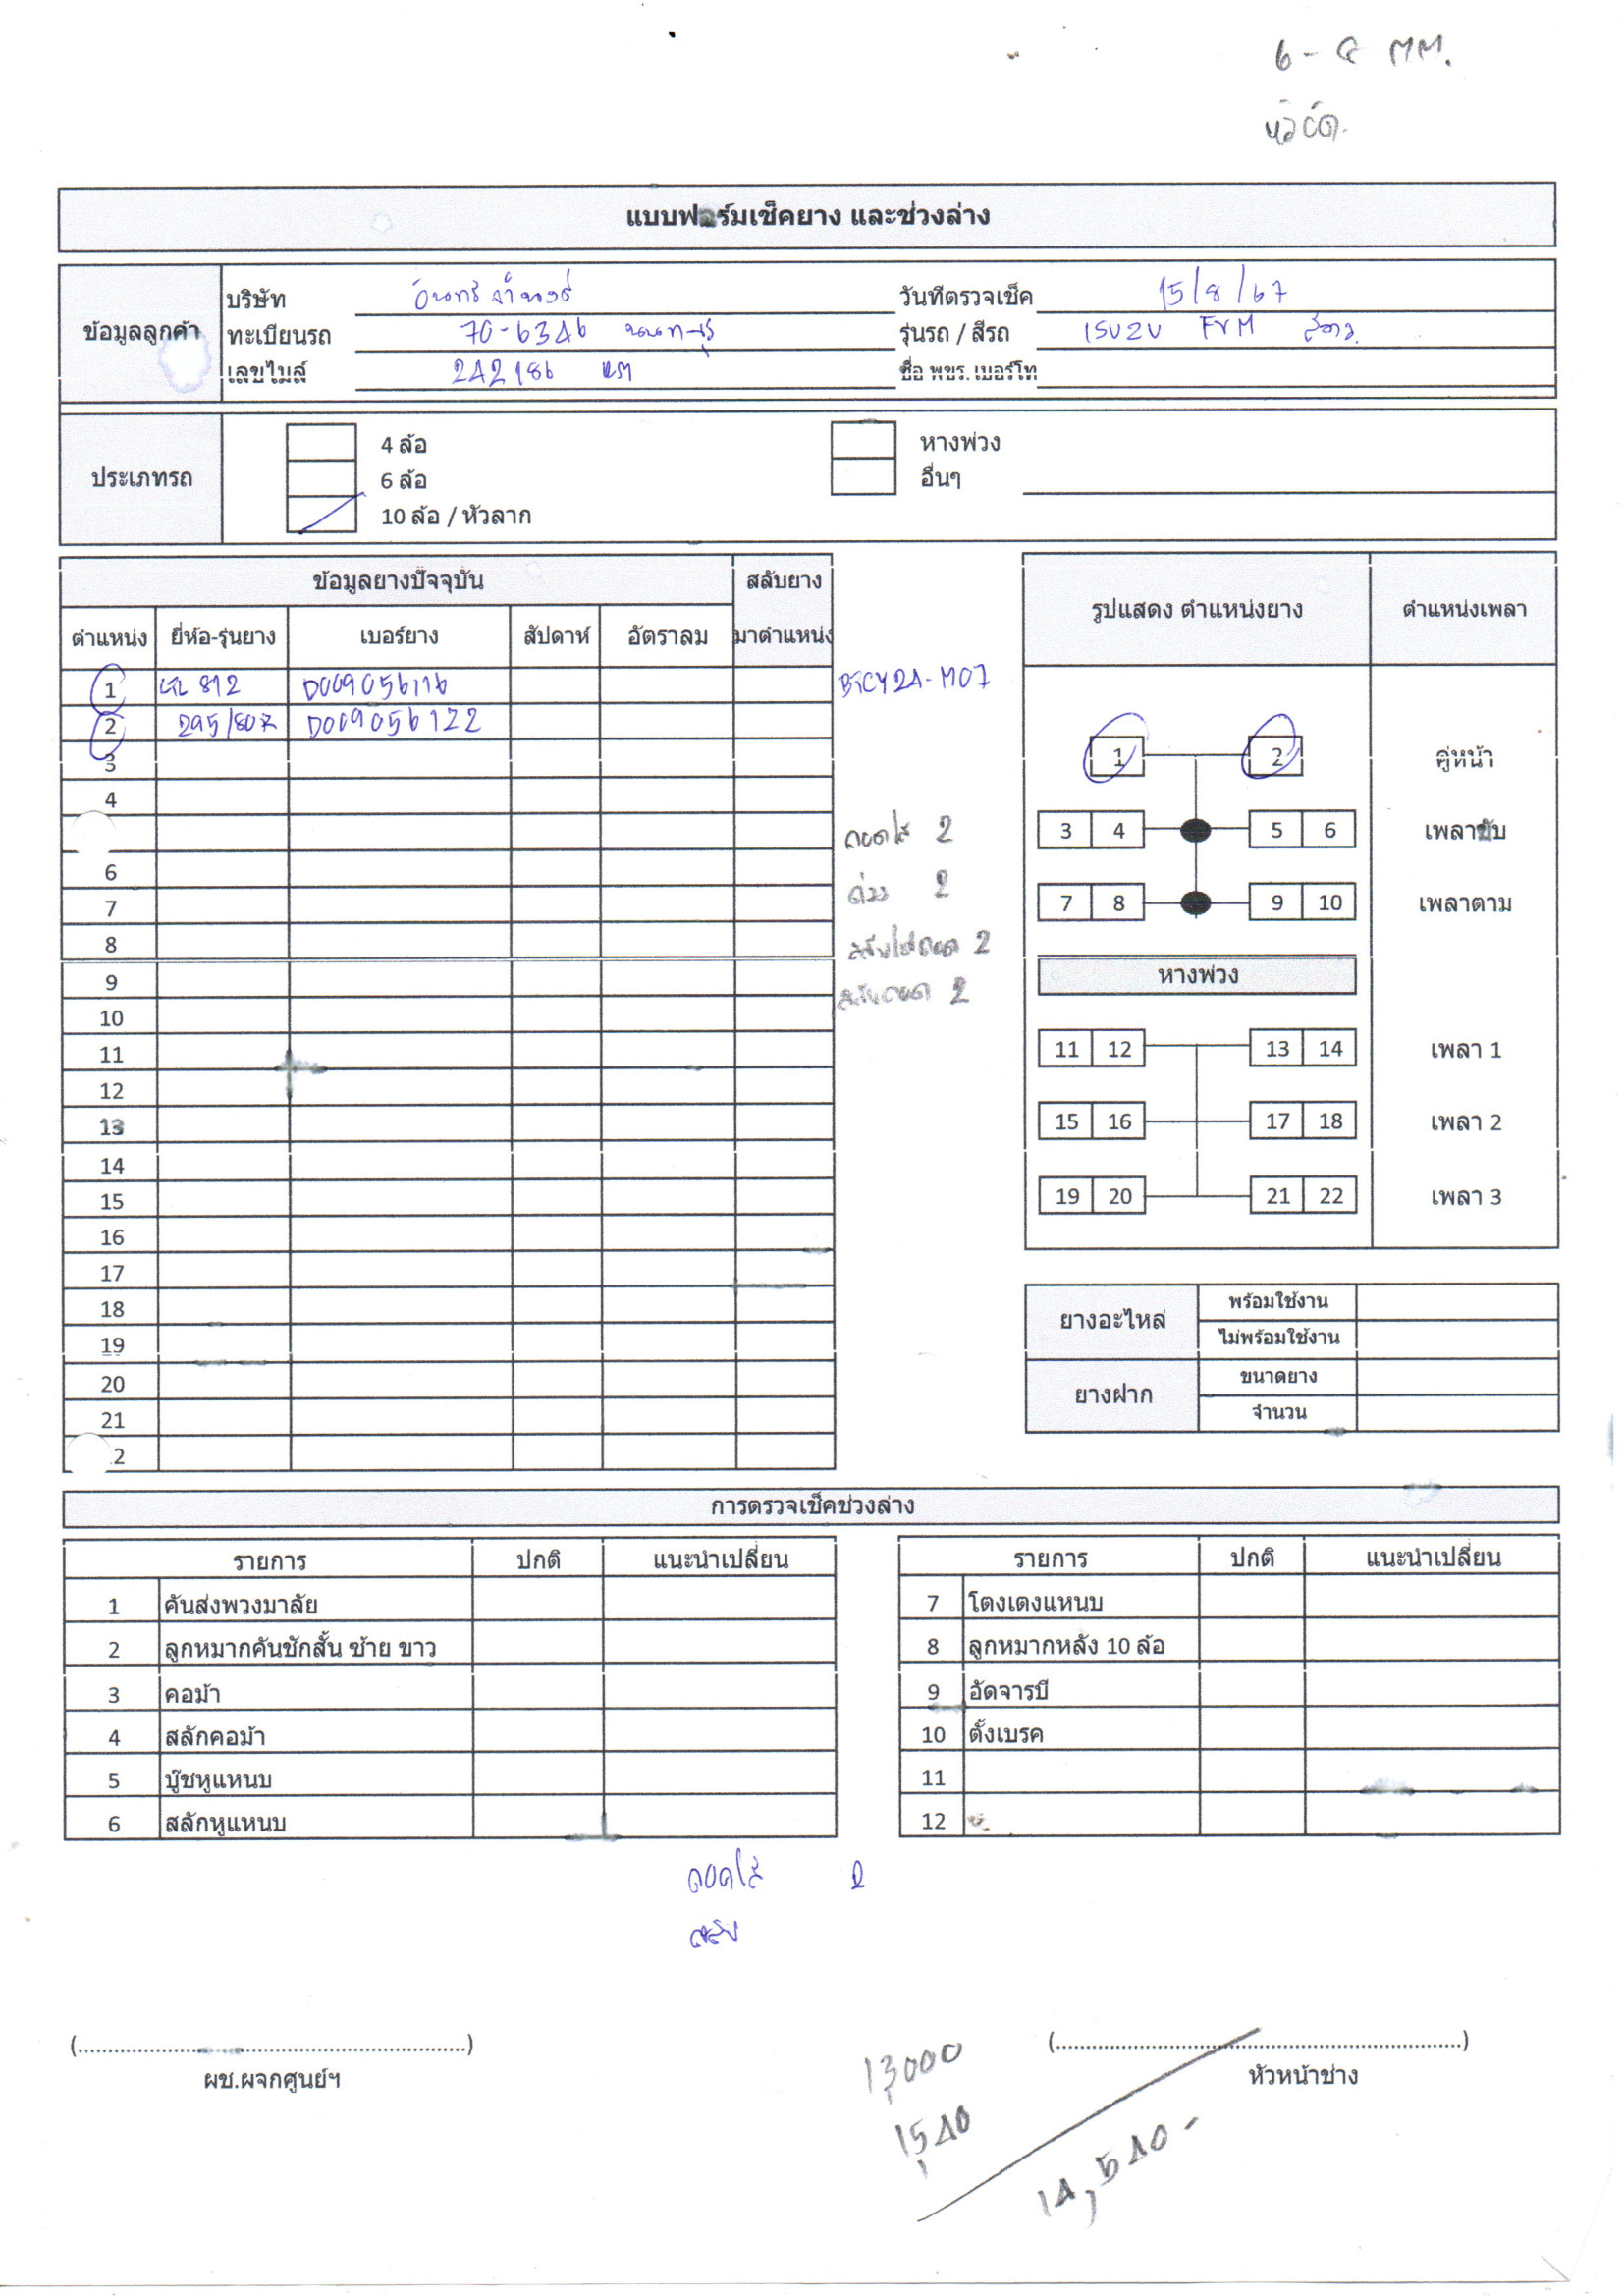 6 - 8 MM.
แบบฟอร์มเช็คยาง และช่วงล่าง
ข้อมูลลูกค้า
บริษัท
วันที่ตรวจเช็ค 15/8/67
ทะเบียนรถ 70-6346 นนทบุรี
รุ่นรถ / สีรถ ISUZU FVM สีขาว
เลขไมล์ 242186 KM
ชื่อ พขร. เบอร์โท
ประเภทรถ
4 ล้อ
หางพ่วง
6 ล้อ
อื่นๆ
10 ล้อ / หัวลาก
ข้อมูลยางปัจจุบัน สลับยาง
ตำแหน่ง ยี่ห้อ-รุ่นยาง เบอร์ยาง สัปดาห์ อัตราลม มาตำแหน่ง
1 812 D009056116
2 295/80R D009056122
3
4
6
7
8
9
10
11
12
13
14
15
16
17
18
19
20
21
2
ถอดใส่ 2
ถ่วง 2
สลับใส่ถอด 2
สลับถอด 2
รูปแสดง ตำแหน่งยาง ตำแหน่งเพลา
1 2 คู่หน้า
3 4 5 6 เพลาขับ
7 8 9 10 เพลาตาม
หางพ่วง
11 12 13 14 เพลา 1
15 16 17 18 เพลา 2
19 20 21 22 เพลา 3
ยางอะไหล่ พร้อมใช้งาน
ไม่พร้อมใช้งาน
ยางฝาก ขนาดยาง
จำนวน
การตรวจเช็คช่วงล่าง
รายการ ปกติ แนะนำเปลี่ยน
1 คันส่งพวงมาลัย
2 ลูกหมากคันชักสั้น ซ้าย ขาว
3 คอม้า
4 สลักคอม้า
5 บู๊ชหูแหนบ
6 สลักหูแหนบ
รายการ ปกติ แนะนำเปลี่ยน
7 โตงเตงแหนบ
8 ลูกหมากหลัง 10 ล้อ
9 อัดจารบี
10 ตั้งเบรค
11
12
ถอดใส่ 2
สลับ
(..................................................................)
ผช.ผจกศูนย์ฯ
(.....................................................................)
หัวหน้าช่าง
13,000
1,540
14,540-